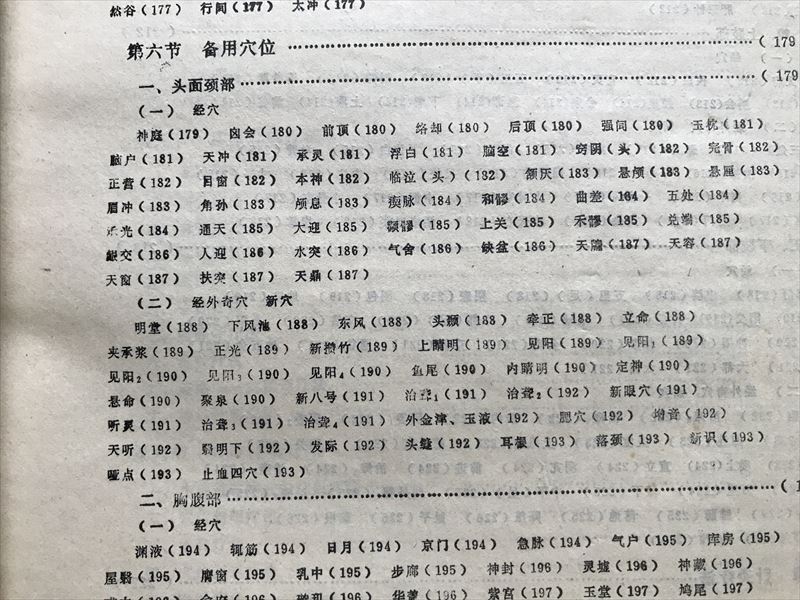 然谷(177) 行间(177) 太冲(177)
第六节 备用穴位 ……(179
一、头面颈部……(179
(一) 经穴
神庭(179) 囟会(180) 前顶(180) 络却(180) 后顶(180) 强间(180) 玉枕(181)
脑户(181) 天冲(181) 承灵(181) 浮白(181) 脑空(181) 窍阴(头)(182) 完骨(182)
正营(182) 目窗(182) 本神(182) 临泣(头)(182) 颔厌(183) 悬颅(183) 悬厘(183)
眉冲(183) 角孙(183) 颅息(183) 瘈脉(184) 和髎(184) 曲差(164) 五处(184)
承光(184) 通天(185) 大迎(185) 颧髎(185) 上关(185) 禾髎(185) 兑端(185)
龈交(186) 人迎(186) 水突(186) 气舍(186) 缺盆(186) 天牖(187) 天容(187)
天窗(187) 扶突(187) 天鼎(187)
(二) 经外奇穴 新穴
明堂(188) 下风池(188) 东风(188) 头颞(188) 牵正(188) 立命(188)
夹承浆(189) 正光(189) 新攒竹(189) 上睛明(189) 见阳(189) 见阳₁(189)
见阳₂(190) 见阳₃(190) 见阳₄(190) 鱼尾(190) 内睛明(190) 定神(190)
悬命(190) 聚泉(190) 新八号(191) 治聋₁(191) 治聋₂(192) 新眼穴(191)
听灵(191) 治聋₃(191) 治聋₄(191) 外金津、玉液(192) 腮穴(192) 增音(192)
天听(192) 翳明下(192) 发际(192) 头缝(192) 耳根(193) 落颈(193) 新识(193)
哑点(193) 止血四穴(193)
二、胸腹部……(1
(一) 经穴
渊液(194) 辄筋(194) 日月(194) 京门(194) 急脉(194) 气户(195) 库房(195)
屋翳(195) 膺窗(195) 乳中(195) 步廊(195) 神封(196) 灵墟(196) 神藏(196)
(196) 华盖(196) 紫宫(197) 玉堂(197) 鸠尾(197)